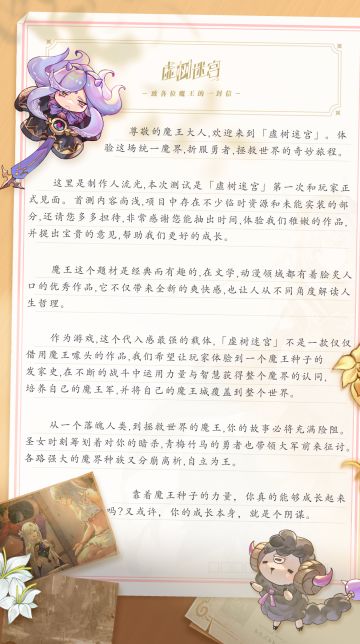 虚树迷宫
致各位魔王的一封信
尊敬的魔王大人,欢迎来到「虚树迷宫」。体
验这场统一魔界,折服勇者,拯救世界的奇妙旅程。
这里是制作人流光,本次测试是「虚树迷宫」第一次和玩家正
式见面。首测内容尚浅,项目中存在不少临时资源和未能实装的部
分,还请您多多担待,非常感谢您能抽出时间,体验我们稚嫩的作品,
并提出宝贵的意见,帮助我们更好的成长。
魔王这个题材是经典而有趣的,在文学,动漫领域都有着脍炙人
口的优秀作品,它不仅带来全新的爽快感,也让人从不同角度解读人
生哲理。
作为游戏,这个代入感最强的载体,「虚树迷宫」不是一款仅仅
借用魔王噱头的作品,我们希望让玩家体验到一个魔王种子的
发家史,在不断的战斗中运用力量与智慧获得整个魔界的认同,
培养自己的魔王军,并将自己的魔王城覆盖到整个世界。
从一个落魄人类,到拯救世界的魔王,你的故事必将充满险阻。
圣女时刻筹划着对你的暗杀,青梅竹马的勇者也带领大军前来征讨。
各路强大的魔界种族又分崩离析,自立为王。
靠着魔王种子的力量，你真的能够成长起来
吗?又或许，你的成长本身，就是个阴谋。